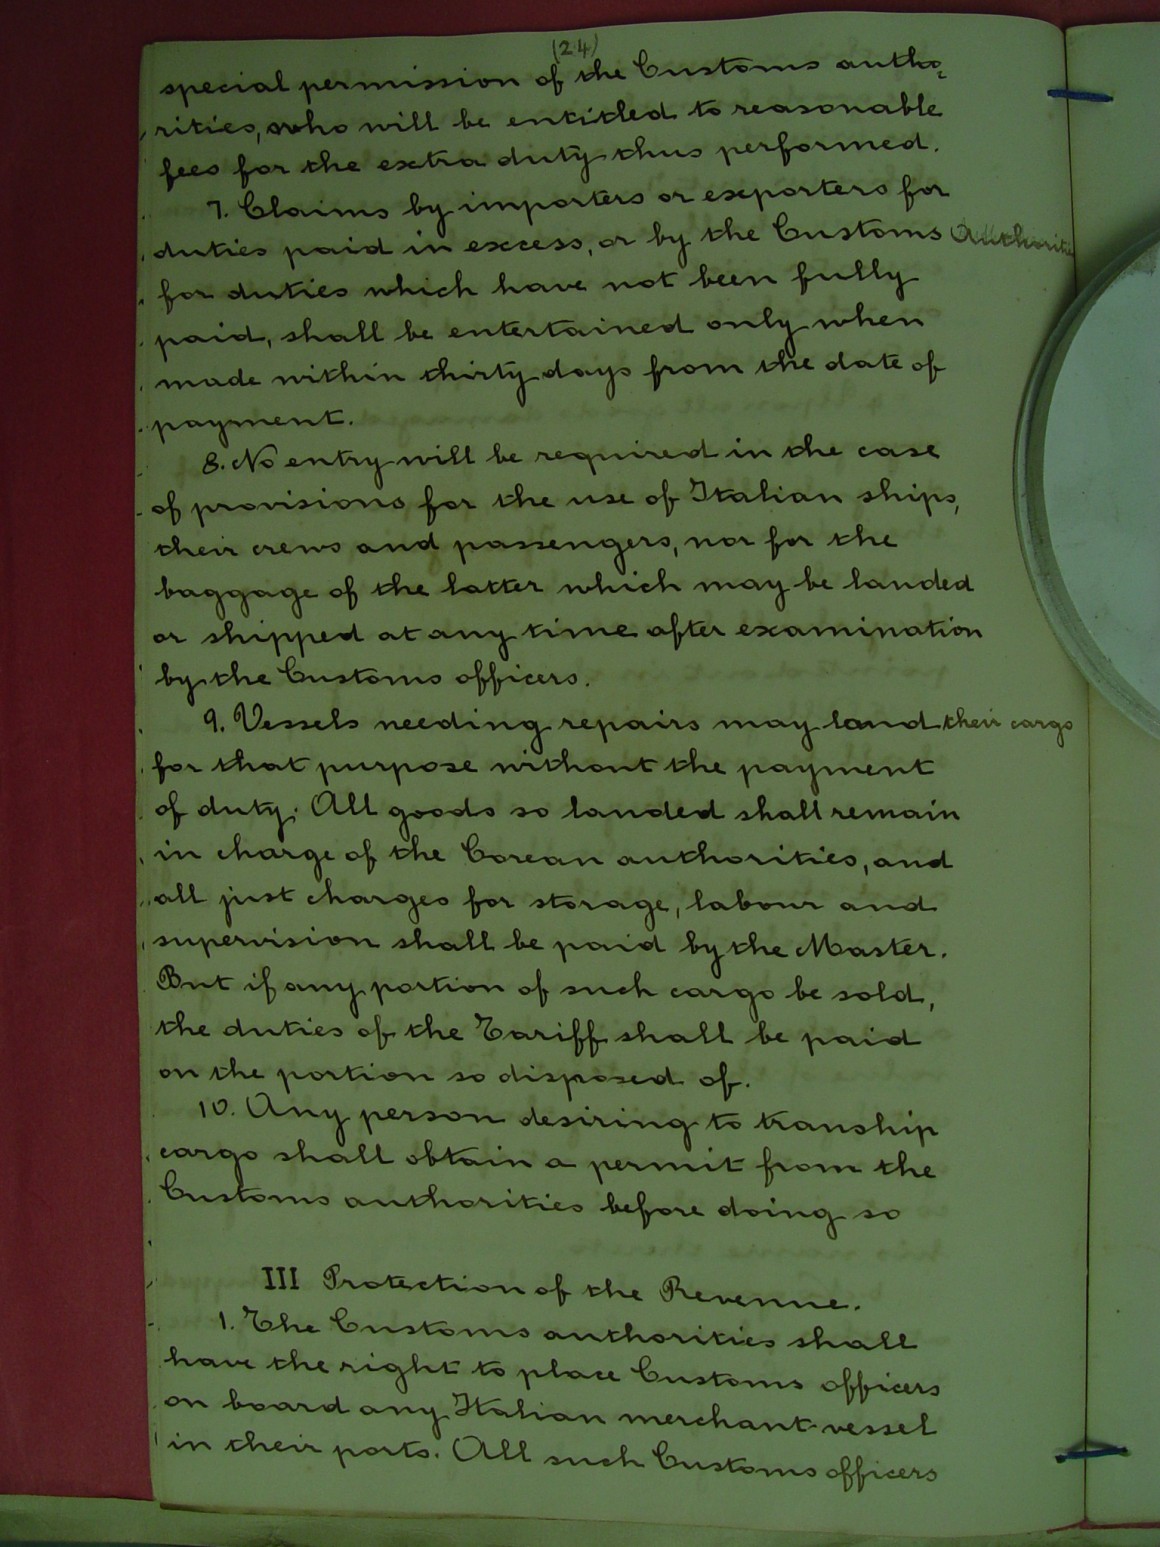 (24)
special permission of the Customs autho-
rities, who will be entitled to reasonable
fees for the extra duty thus performed.
7. Claims by importers or exporters for
duties paid in excess, or by the Customs Authorities
for duties which have not been fully
paid, shall be entertained only when
made within thirty days from the date of
payment.
8. No entry will be required in the case
of provisions for the use of Italian ships,
their crews and passengers, nor for the
baggage of the latter which may be landed
or shipped at any time after examination
by the Customs officers.
9. Vessels needing repairs may land their cargo
for that purpose without the payment
of duty. All goods so landed shall remain
in charge of the Corean authorities, and
all just charges for storage, labour and
supervision shall be paid by the Master.
But if any portion of such cargo be sold,
the duties of the Tariff shall be paid
on the portion so disposed of.
10. Any person desiring to tranship
cargo shall obtain a permit from the
Customs authorities before doing so
III Protection of the Revenue.
1. The Customs authorities shall
have the right to place Customs officers
on board any Italian merchant vessel
in their ports. All such Customs officers